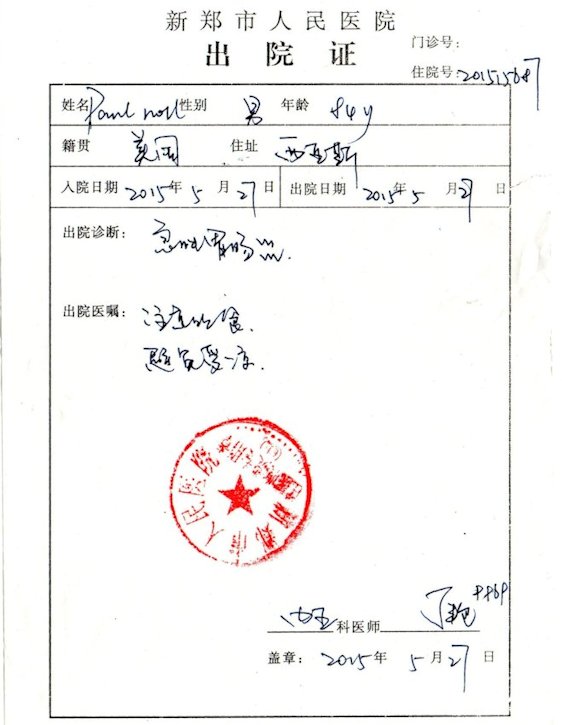 新郑市人民医院
出院证
门诊号：
住院号：201515687
姓名 Paul noll 性别 男 年龄 84y
籍贯 美国 住址 西亚斯
入院日期 2015年 5月 27日 出院日期 2015年 5月 27日
出院诊断： 急性胃肠炎.
出院医嘱： 注意饮食.
避免受凉.
新郑市人民医院
科医师
盖章： 2015年 5月 27日